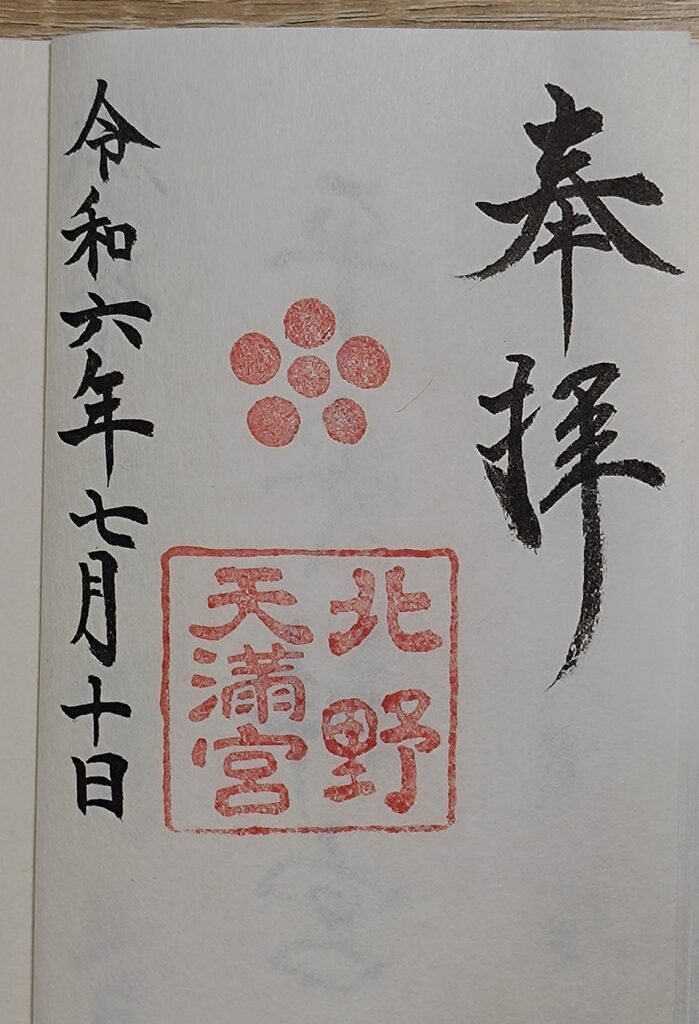 奉拝
北野
天満宮
令和六年七月十日